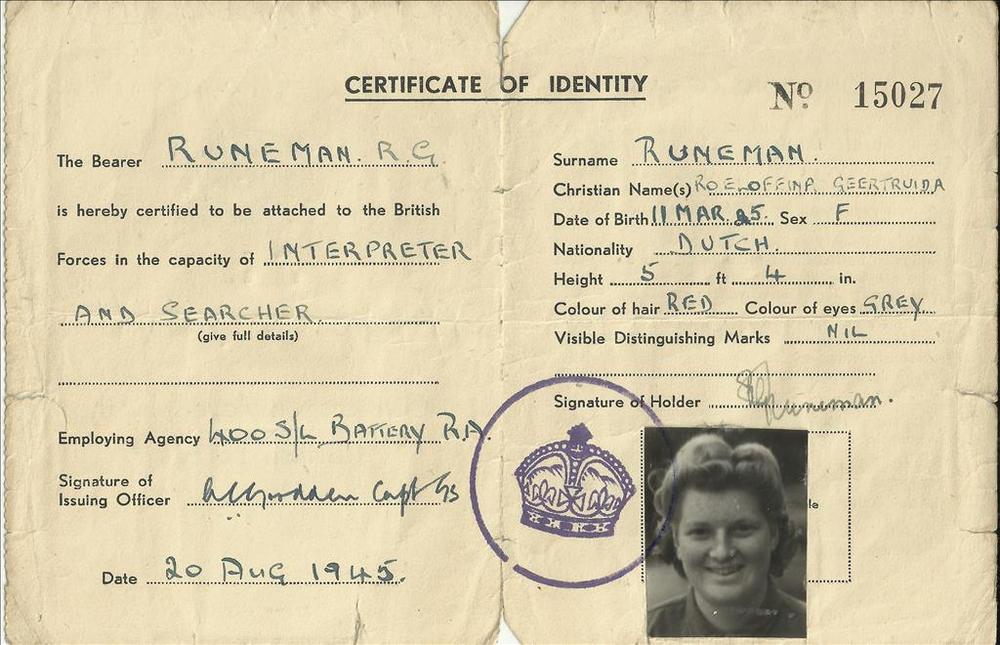 CERTIFICATE OF IDENTITY
Nº 15027
The Bearer RUNEMAN. R.G.
is hereby certified to be attached to the British
Forces in the capacity of INTERPRETER
AND SEARCHER.
(give full details)
Employing Agency 400 S/L BATTERY R.A.
Signature of
Issuing Officer Capt
Date 20 AUG 1945.
Surname RUNEMAN.
Christian Name(s) ROELOFFINA GEERTRUIDA
Date of Birth 11 MAR 25. Sex F
Nationality DUTCH.
Height 5 ft 4 in.
Colour of hair RED Colour of eyes GREY
Visible Distinguishing Marks NIL
Signature of Holder Runeman.
le